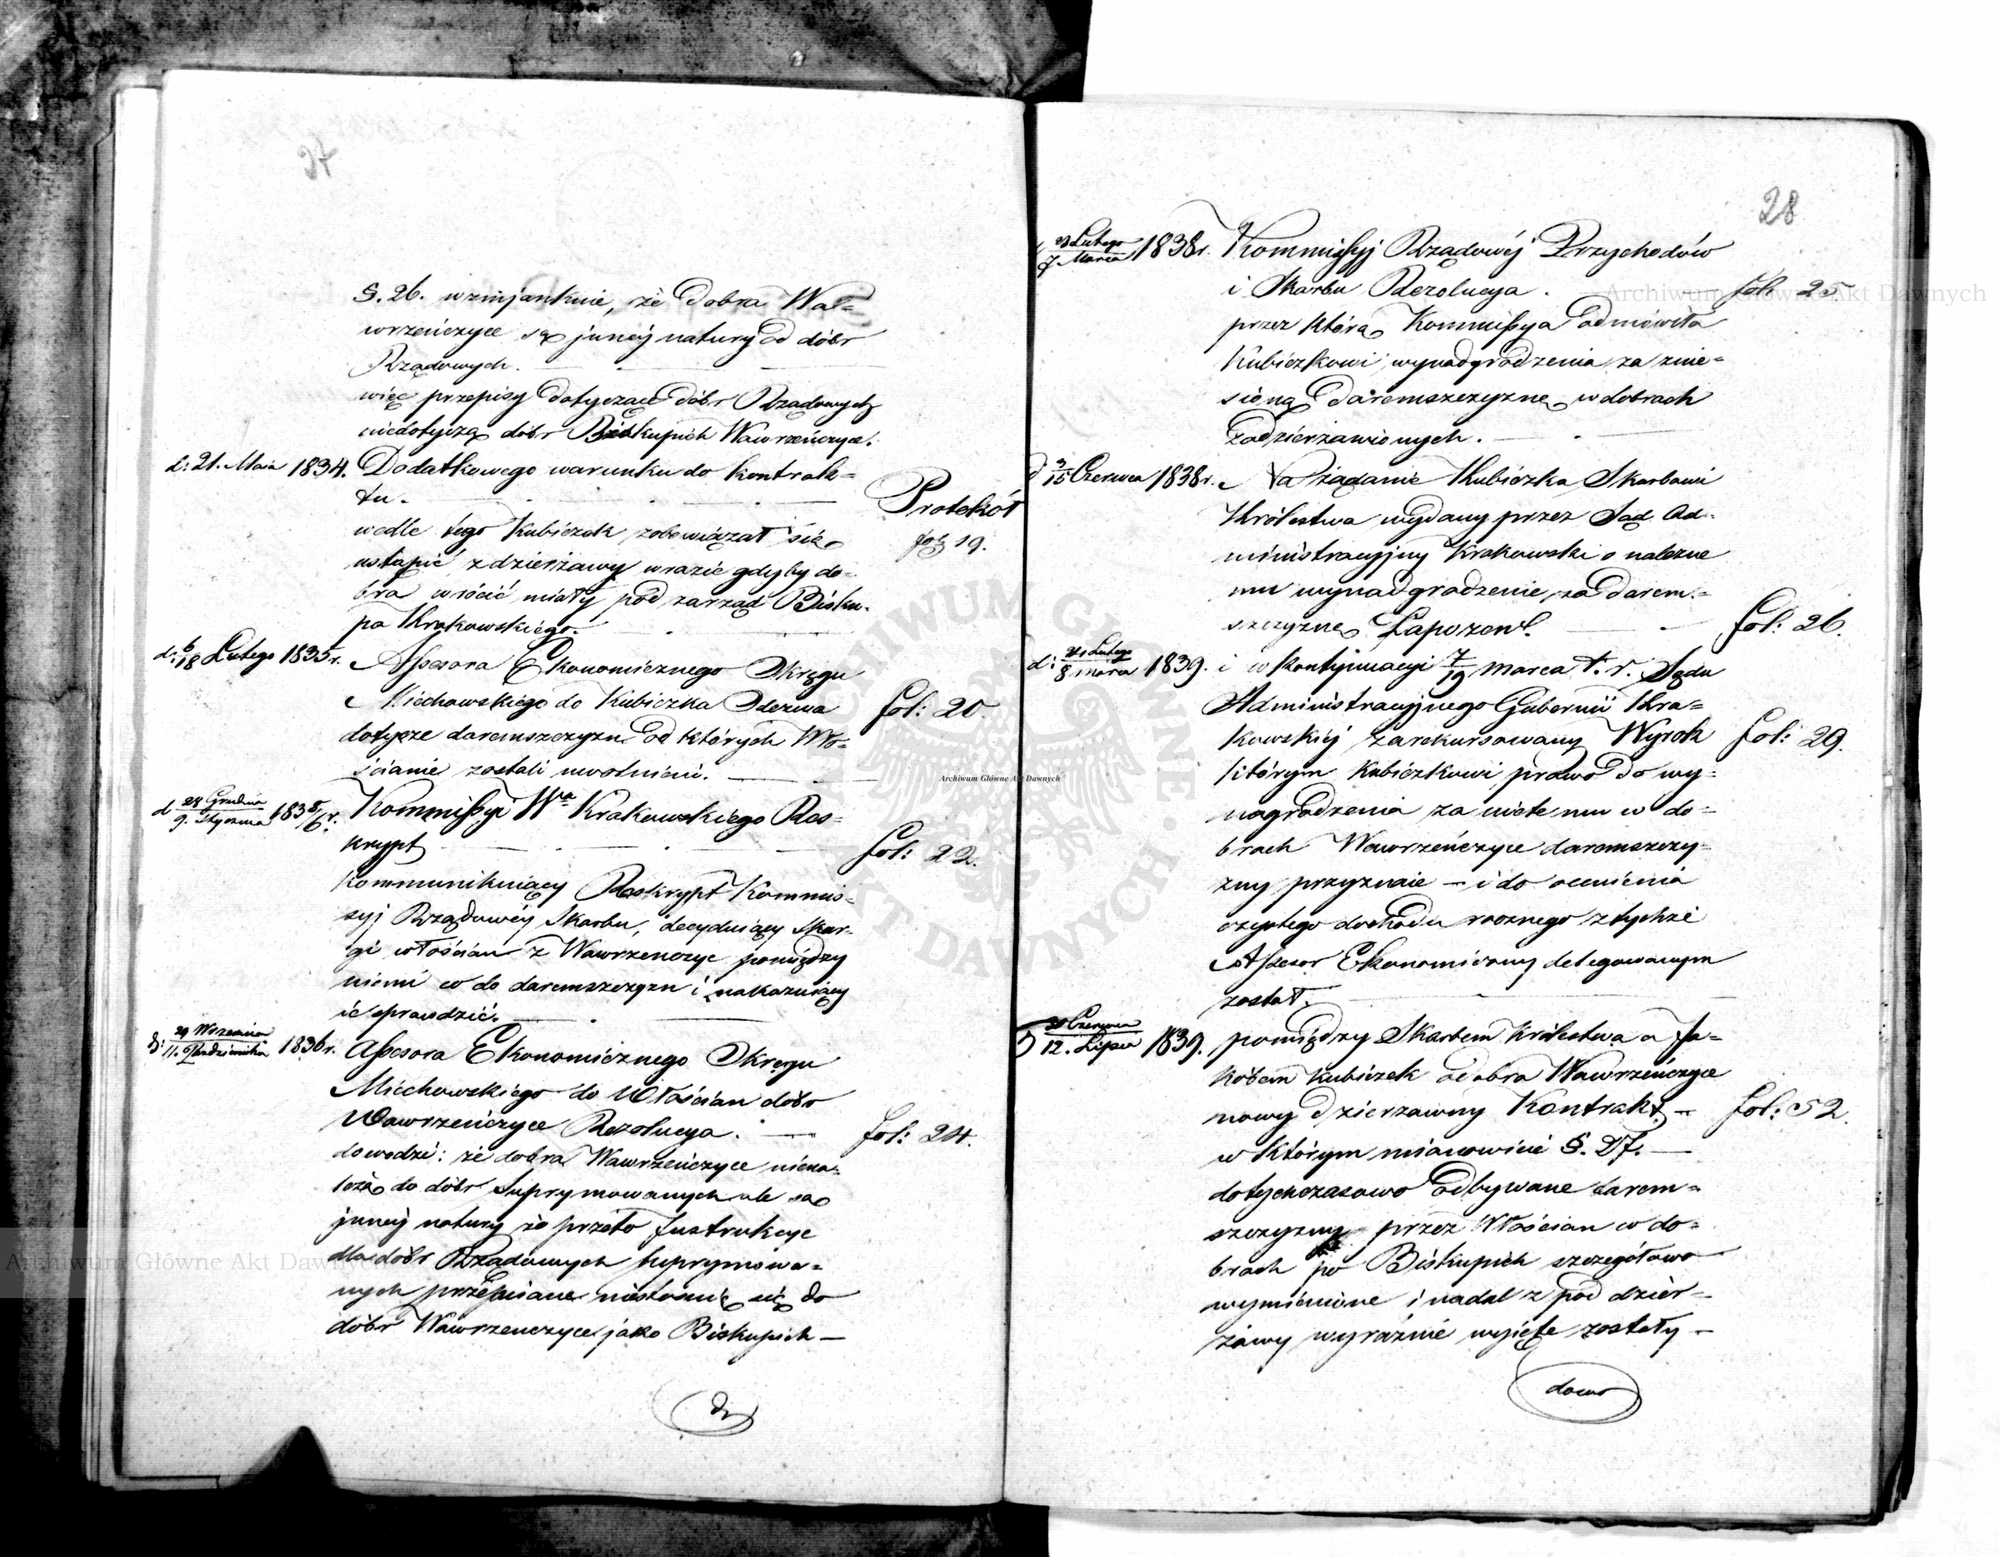 27
§. 26. wzmjankuie, że dobra Waw=
wrzeńczyce są jnnéj natury od dóbr
Rządowych.
więc przepisy dotyczące dóbr Rządowych
niedotyczą dóbr Biskupich Wawrzeńczyce.
d: 21. Maia 1834. Dodatkowego warunku do kontrak=
tu.
Protokół
wedle tego Kubiczek zobowiązał się
fol: 19.
ustąpić z dzierżawy wrazie gdyby do=
bra wrócić miały pod zarząd Bisku=
pa Krakowskiego.
d: 6/18 Lutego 1835r. Assesora Ekonomicznego Okręgu
Miechowskiego do Kubiczka Odezwa
fol: 20.
dotycze daremszczyzn od których Wło=
ścianie zostali uwolnieni.
d 28 Grudnia/9. Stycznia 1835/6r. Kommissyi Wa Krakowskiego Res=
krypt
fol: 22.
kommunikuiący Reskrypt Kommis=
syj Rządowéy Skarbu, decyduiący skar=
gi włościan z Wawrzenczyc pomiędzy
niemi co do daremszczyzn i nakazuiący
ie sprawdzić.
d: 29 Wrzesnia/11. Października 1836r. Assesora Ekonomicznego Okręgu
Miechowskiego do Włościan dóbr
Wawrzeńczyce Rezolucya.
fol: 24.
dowodzi: że dobra Wawrzeńczyce niena=
leżą do dóbr suprymowanych ale są
jnnéj natury że przeto Jnstrukcye
dla dóbr Rządowych suprymowa=
nych przepisane niestosuią się do
dóbr Wawrzenczyce jako Biskupich —
28
23 Lutego/7 Marca 1838r. Kommissyj Rządowéj Przychodów
i Skarbu Rezolucya.
fol: 25.
przez którą Kommissya odmówiła
Kubiczkowi wynadgrodzenia za znie=
sioną daremszczyznę w dobrach
zadzierżawionych.
d 3/15 Czerwca 1838r. Na żądanie Kubiczka Skarbowi
Królestwa wydany przez Sąd Ad=
ministracyjny Krakowski o należne
mu wynadgrodzenie za darem=
szczyznę Zapozew.
fol: 26.
d: 24 Lutego/8 marca 1839. i w kontynuacyi 7/19 marca t. r. Sądu
Administracyjnego Gubernii Kra=
kowskiéj zarekursowany Wyrok
fol: 29.
którym Kubiczkowi prawo do wy=
nagrodzenia za wzięte mu w do=
brach Wawrzeńczyce daremszczy=
zny przyznaie — i do ocenienia
czystego dochodu rocznego z tychże
Assesor Ekonomiczny delegowanym
został.
D 30 Czerwca/12. Lipca 1839. pomiędzy Skarbem Królestwa a Ja=
kóbem Kubiczek o dobra Wawrzeńczyce
nowy dzierzawny Kontrakt —
fol: 52.
w którym mianowicie §.
dotychczasowo odbywane darem=
szczyzny przez Włościan w do=
brach po Biskupich szczegółowo
wymienione i nadal z pod dzier=
żawy wyraźnie wyięte zostały —
dowo
Archiwum Główne Akt Dawnych
Archiwum Główne Akt Dawnych
Archiwum Główne Akt Dawnych
ARCHIWUM GŁÓWNE AKT DAWNYCH